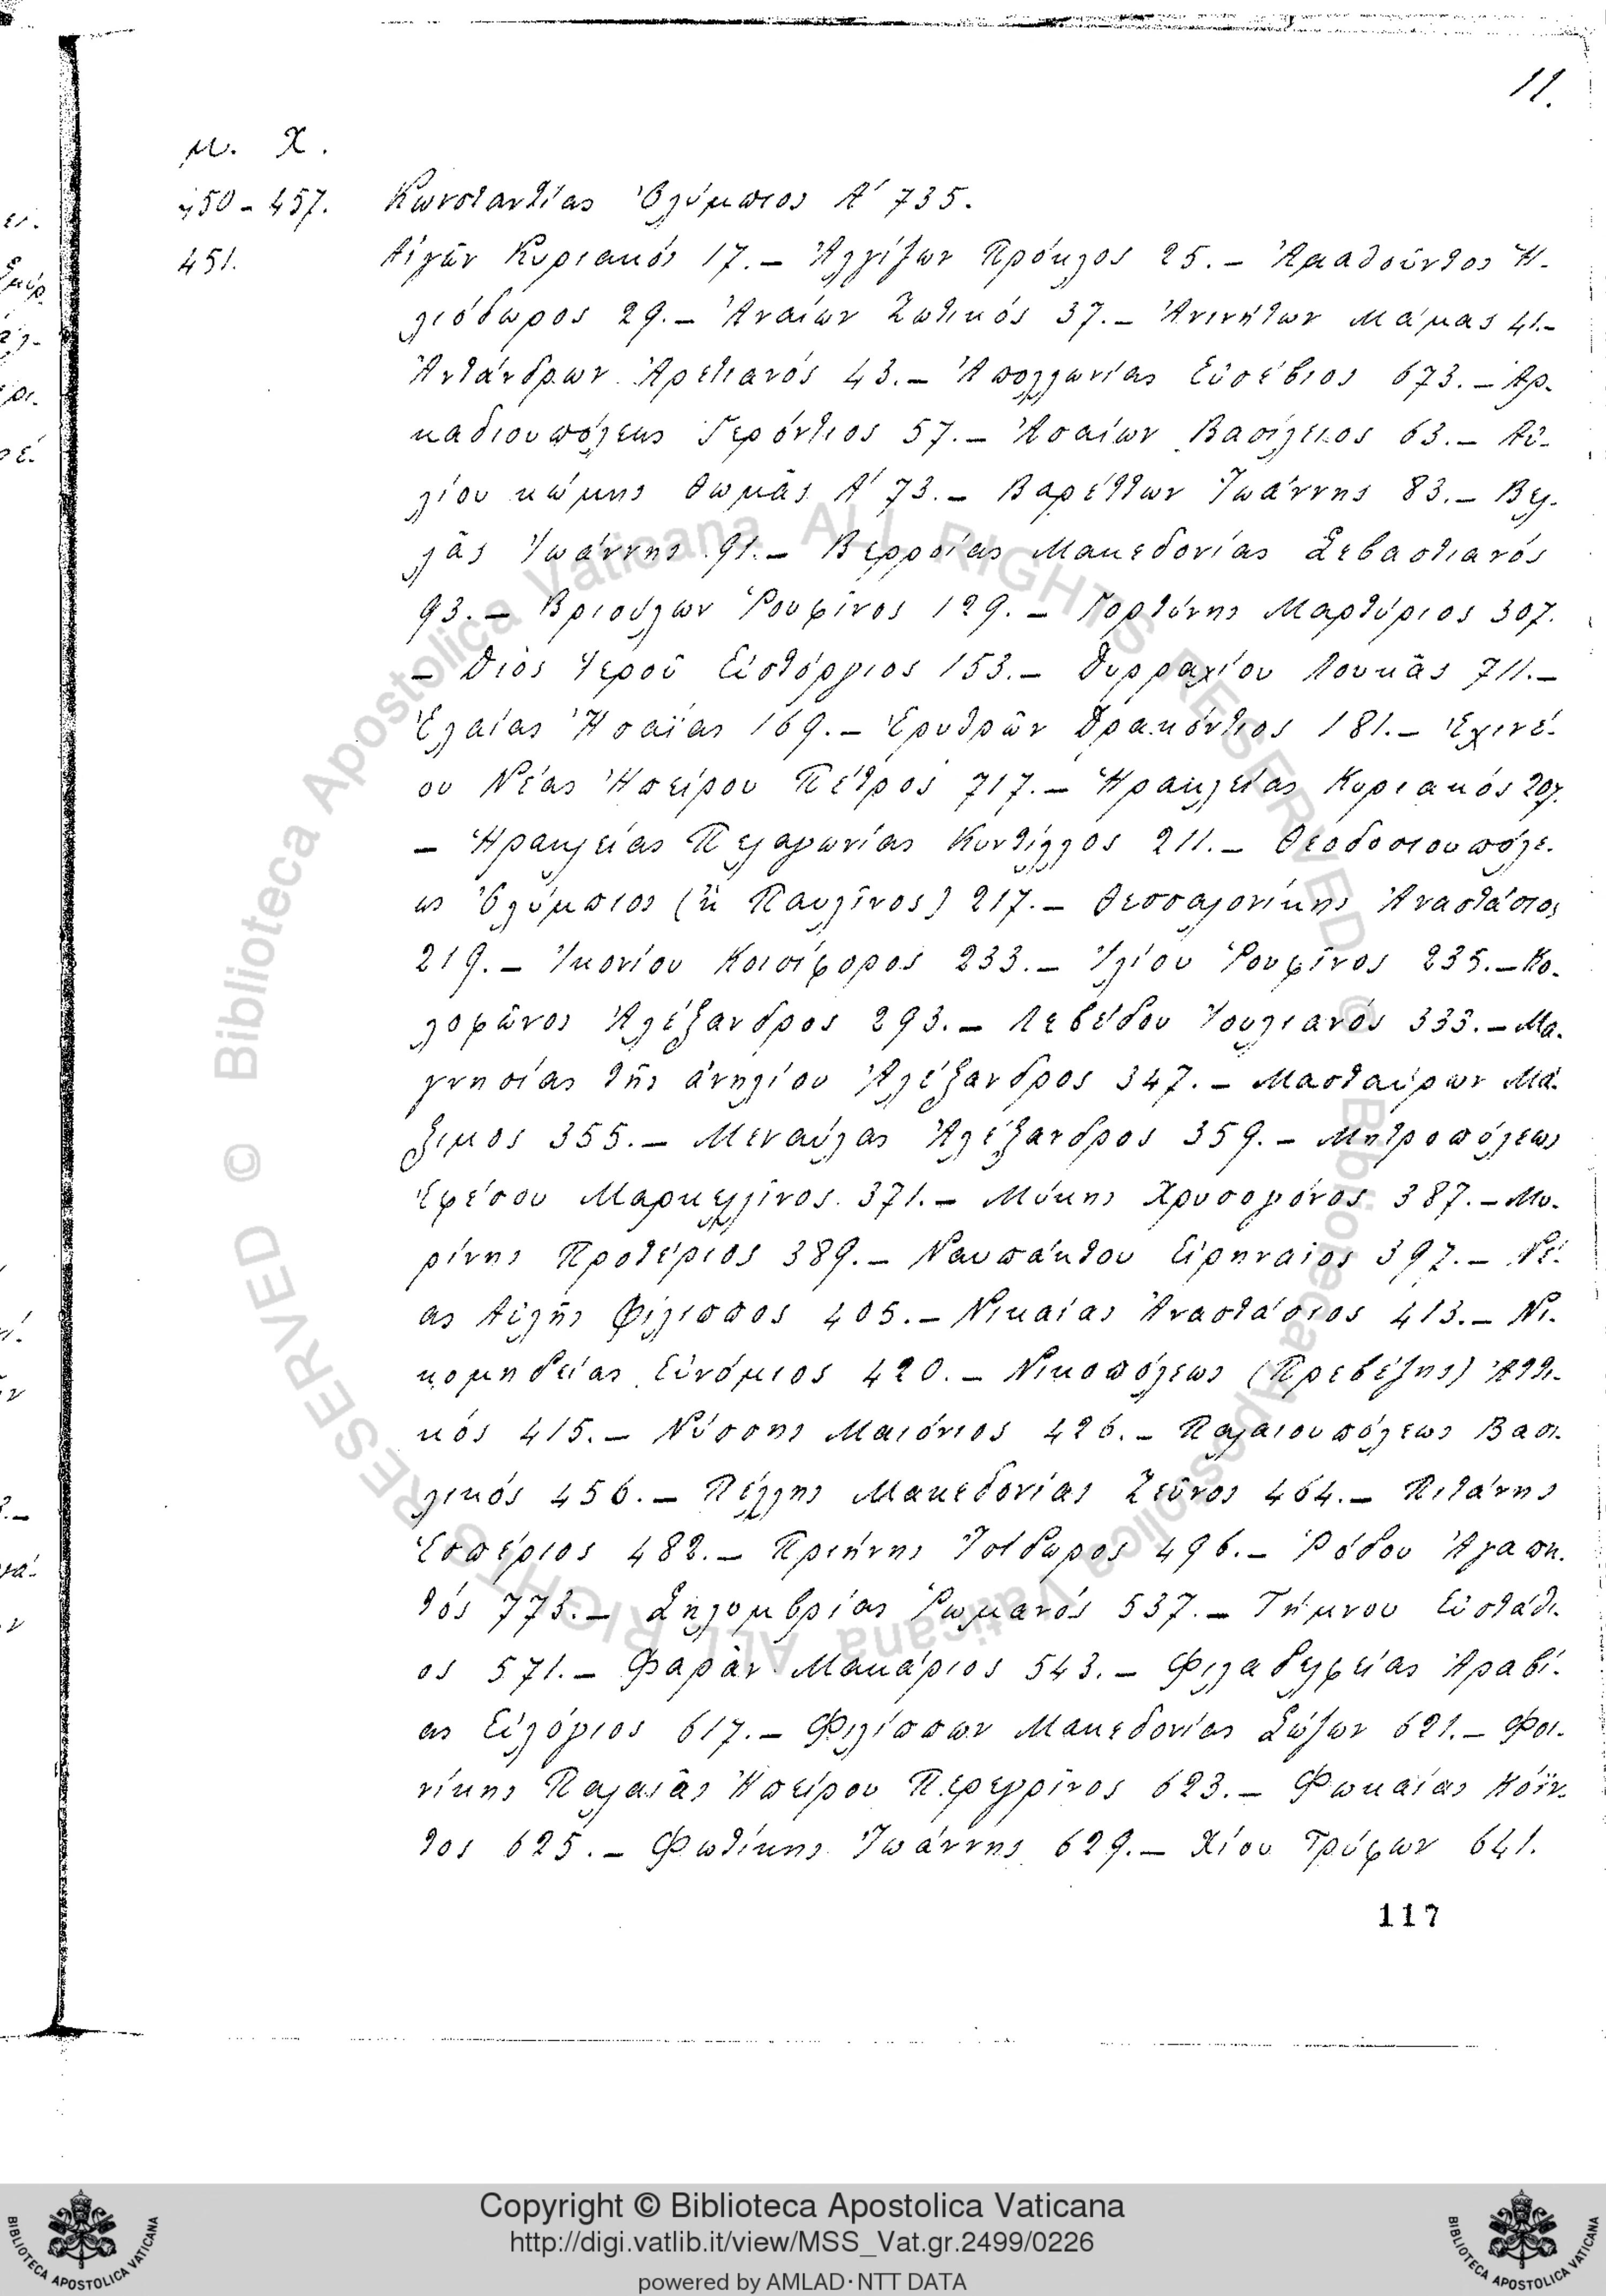 11.
μ. Χ.
450 - 457. Κωνσταντίας Ὀλύμπιος Α΄ 735.
451. Αἰγῶν Κυριακός 17. – Ἀλγίζων Πρόκλος 25. – Ἀμαθοῦντος Ἡ-
λιόδωρος 29. – Ἀναίων Ζωτικός 37. – Ἀνινήτων Μάμας 41. –
Ἀντάνδρων Ἀρετιανός 43. – Ἀπολλωνίας Εὐσέβιος 673. – Ἀρ-
καδιουπόλεως Γερόντιος 57. – Ἀσαίων Βασίλειος 63. – Αὐ-
λίου κώμης Θωμᾶς Α΄ 73. – Βαρέττων Ἰωάννης 83. – Βελ-
λᾶς Ἰωάννης 91. – Βερροίας Μακεδονίας Σεβαστιανός
93. – Βριούλων Ῥουφῖνος 129. – Γορτύνης Μαρτύριος 307.
– Διὸς Ἱεροῦ Εὐστόργιος 153. – Δυρραχίου Λουκᾶς 711. –
Ἐλαίας Ἡσαΐας 169. – Ἐρυθρῶν Δρακόντιος 181. – Ἐχινέ-
ου Νέας Ἠπείρου Πέτρος 717. – Ἡρακλείας Κυριακός 207.
– Ἡρακλείας Πελαγωνίας Κυντίλλος 211. – Θεοδοσιουπόλε-
ως Ὀλύμπιος (ἢ Παυλῖνος) 217. – Θεσσαλονίκης Ἀναστάσιος
219. – Ἰκονίου Κοισίφορος 233. – Ἰλίου Ῥουφῖνος 235. – Κο-
λοφῶνος Ἀλέξανδρος 293. – Λεβέδου Ἰουλιανός 333. – Μα-
γνησίας τῆς ἀνηλίου Ἀλέξανδρος 347. – Μασταύρων Μά-
ξιμος 355. – Μεναύλας Ἀλέξανδρος 359. – Μητροπόλεως
Ἐφέσου Μαρκελλῖνος 371. – Μύκης Χρυσογόνος 387. – Μυ-
ρίνης Προτέριος 389. – Ναυπάκτου Εἰρηναῖος 397. – Νέ-
ας Αὐλῆς Φίλιππος 405. – Νικαίας Ἀναστάσιος 413. – Νι-
κομηδείας Εὐνόμιος 420. – Νικοπόλεως (Πρεβέζης) Ἀττι-
κός 415. – Νύσσης Μαιόνιος 426. – Παλαιουπόλεως Βασι-
λικός 456. – Πέλλης Μακεδονίας Ζεῦνος 464. – Πιτάνης
Ἑσπέριος 482. – Πριήνης Ἰσίδωρος 496. – Ῥόδου Ἀγαπη-
τός 773. – Σηλυμβρίας Ῥωμανός 537. – Τήμνου Εὐστάθι-
ος 571. – Φαρὰν Μακάριος 543. – Φιλαδελφείας Ἀραβί-
ας Εὐλόγιος 617. – Φιλίππων Μακεδονίας Σώζων 621. – Φοι-
νίκης Παλαιᾶς Ἠπείρου Περεγρῖνος 623. – Φωκαίας Κόϊν-
τος 625. – Φωτίκης Ἰωάννης 629. – Χίου Τρύφων 641.
117
Copyright © Biblioteca Apostolica Vaticana
http://digi.vatlib.it/view/MSS_Vat.gr.2499/0226
powered by AMLAD·NTT DATA